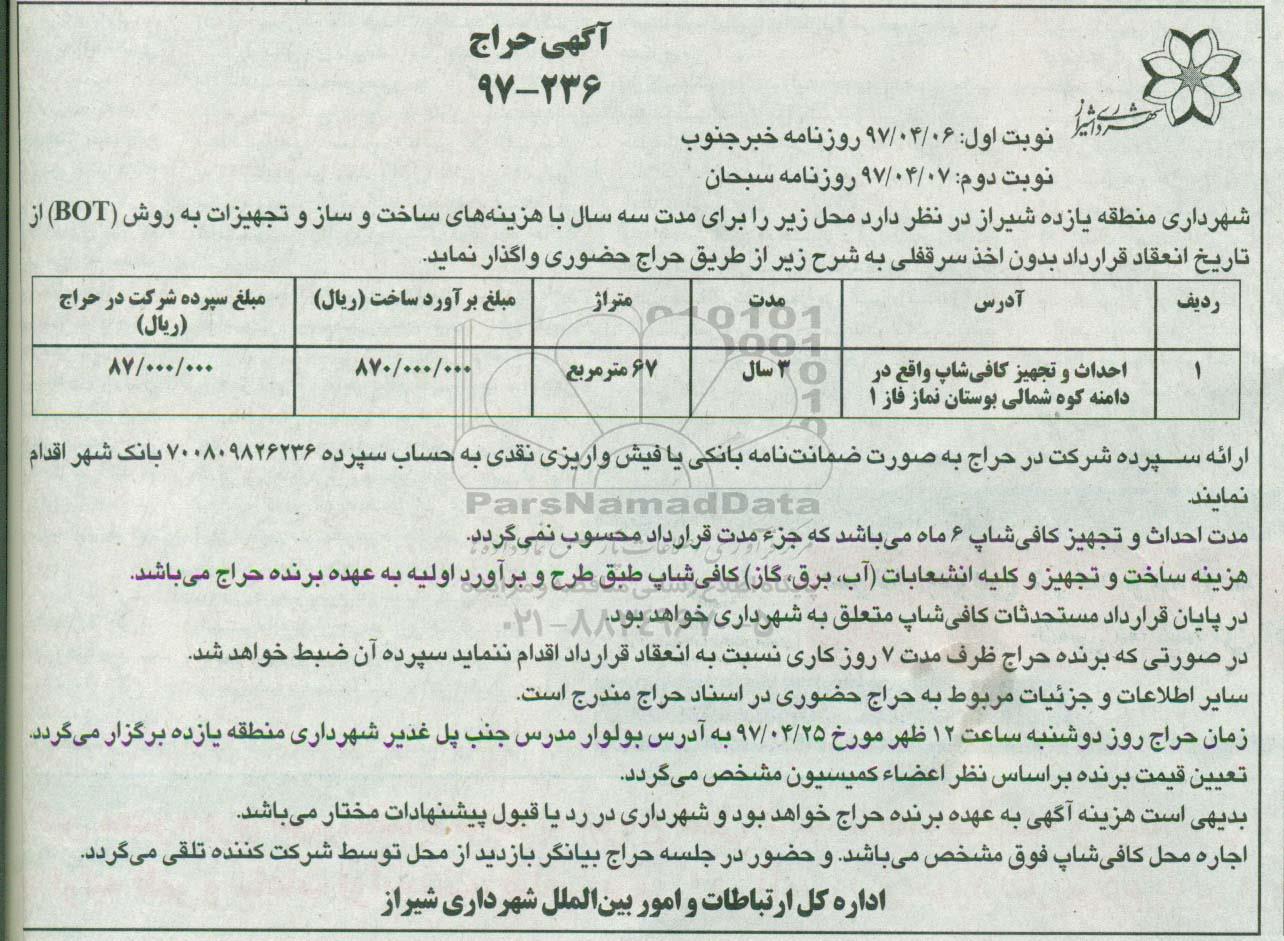 آگهی حراج
۹۷-۲۳۶
شهرداری شیراز
نوبت اول: ۹۷/۰۴/۰۶ روزنامه خبرجنوب
نوبت دوم: ۹۷/۰۴/۰۷ روزنامه سبحان
شهرداری منطقه یازده شیراز در نظر دارد محل زیر را برای مدت سه سال با هزینه‌های ساخت و ساز و تجهیزات به روش (BOT) از
تاریخ انعقاد قرارداد بدون اخذ سرقفلی به شرح زیر از طریق حراج حضوری واگذار نماید.
ردیف آدرس مدت متراژ مبلغ برآورد ساخت (ریال) مبلغ سپرده شرکت در حراج
(ریال)
۱ احداث و تجهیز کافی‌شاپ واقع در ۳ سال ۶۷ مترمربع ۸۷۰/۰۰۰/۰۰۰ ۸۷/۰۰۰/۰۰۰
دامنه کوه شمالی بوستان نماز فاز ۱
ارائه سپرده شرکت در حراج به صورت ضمانت‌نامه بانکی یا فیش واریزی نقدی به حساب سپرده ۷۰۰۸۰۹۸۲۶۲۳۶ بانک شهر اقدام
نمایند.
ParsNamadData
مدت احداث و تجهیز کافی‌شاپ ۶ ماه می‌باشد که جزء مدت قرارداد محسوب نمی‌گردد.
هزینه ساخت و تجهیز و کلیه انشعابات (آب، برق، گاز) کافی‌شاپ طبق طرح و برآورد اولیه به عهده برنده حراج می‌باشد.
پایگاه اطلاع رسانی مناقصه و مزایده
در پایان قرارداد مستحدثات کافی‌شاپ متعلق به شهرداری خواهد بود.
در صورتی که برنده حراج ظرف مدت ۷ روز کاری نسبت به انعقاد قرارداد اقدام ننماید سپرده آن ضبط خواهد شد.
سایر اطلاعات و جزئیات مربوط به حراج حضوری در اسناد حراج مندرج است.
زمان حراج روز دوشنبه ساعت ۱۲ ظهر مورخ ۹۷/۰۴/۲۵ به آدرس بولوار مدرس جنب پل غدیر شهرداری منطقه یازده برگزار می‌گردد.
تعیین قیمت برنده براساس نظر اعضاء کمیسیون مشخص می‌گردد.
بدیهی است هزینه آگهی به عهده برنده حراج خواهد بود و شهرداری در رد یا قبول پیشنهادات مختار می‌باشد.
اجاره محل کافی‌شاپ فوق مشخص می‌باشد. و حضور در جلسه حراج بیانگر بازدید از محل توسط شرکت کننده تلقی می‌گردد.
اداره کل ارتباطات و امور بین‌الملل شهرداری شیراز